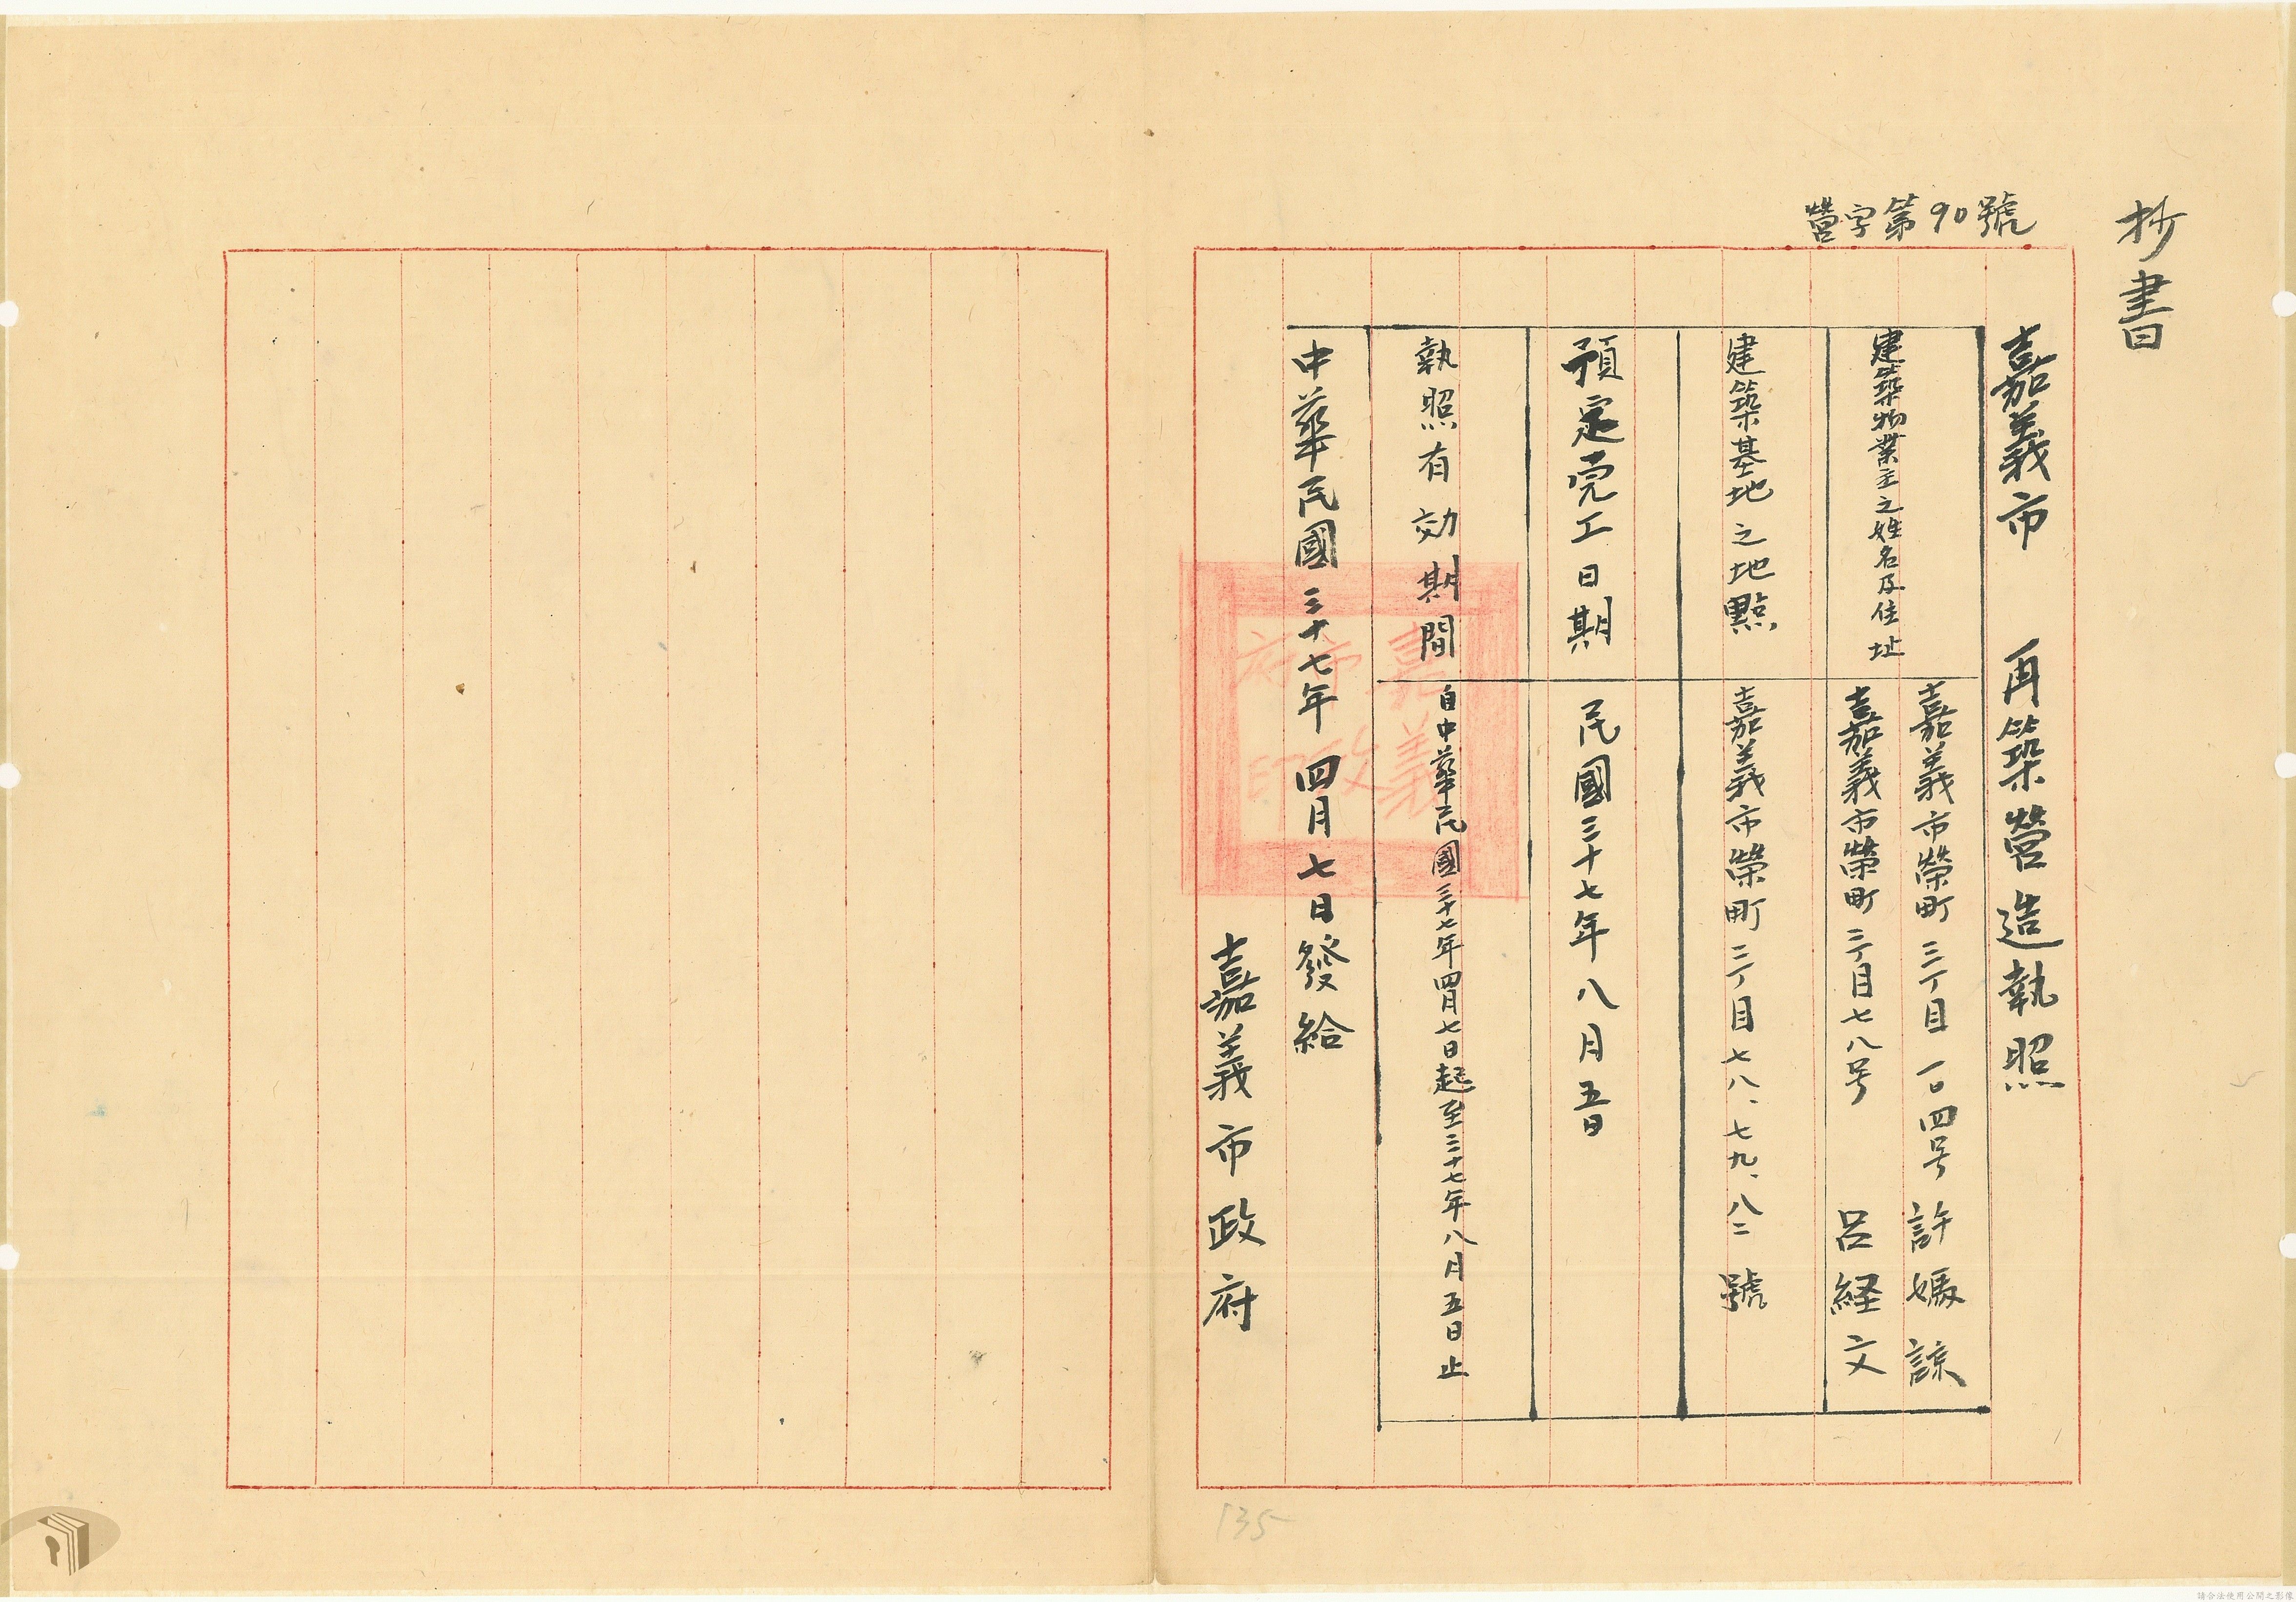 抄書
營字第90號
嘉義市 再築營造執照
建築物業主之姓名及住址
嘉義市榮町三丁目一〇四号 許媽諒
嘉義市榮町三丁目七八号 呂経文
建築基地之地點
嘉義市榮町三丁目七八、七九、八二號
預定完工日期
民國三十七年八月五日
執照有効期間
自中華民國三十七年四月七日起至三十七年八月五日止
中華民國三十七年四月七日發給
嘉義市政府
嘉義
市政
府印
135
請合法使用公開之影像